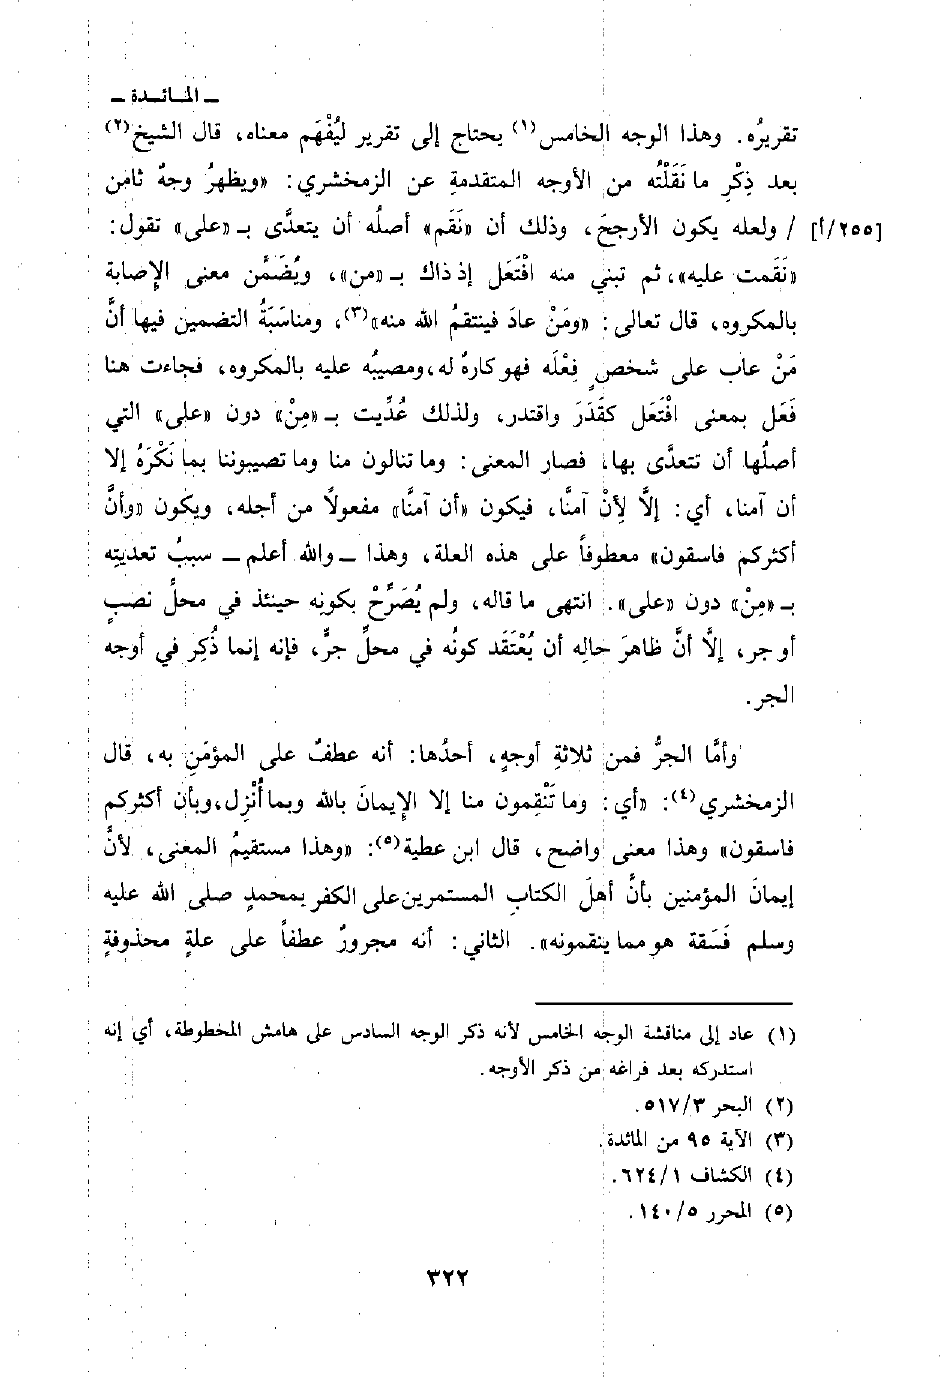 ـ المـائـدة ـ
تقريرُه. وهذا الوجه الخامس(١) يحتاج إلى تقرير ليُفْهَم معناه، قال الشيخ(٢)
بعد ذِكْرِ ما نَقَلْتُه من الأوجه المتقدمةِ عن الزمخشري: «ويظهرُ وجهٌ ثامن
[٢٥٥/أ] / ولعله يكون الأرجحَ، وذلك أن «نَقَم» أصلُه أن يتعدَّى بـ «على» تقول:
«نَقَمت عليه»، ثم تبني منه افْتَعَل إذ ذاك بـ «من»، ويُضَمَّن معنى الإصابة
بالمكروه، قال تعالى: «ومَنْ عادَ فينتقمُ الله منه»(٣)، ومناسَبَةُ التضمين فيها أنَّ
مَنْ عاب على شخصٍ فِعْلَه فهو كارهٌ له، ومصيبُه عليه بالمكروه، فجاءت هنا
فَعَل بمعنى افْتَعَل كقَدَرَ واقتدر، ولذلك عُدِّيت بـ «مِنْ» دون «على» التي
أصلُها أن تتعدَّى بها، فصار المعنى: وما تنالون منا وما تصيبوننا بما نَكْرَهُ إلا
أن آمنا، أي: إلَّا لِأنْ آمنَّا، فيكون «أن آمنَّا» مفعولاً من أجله، ويكون «وأنَّ
أكثركم فاسقون» معطوفاً على هذه العلة، وهذا ـ والله أعلم ـ سببُ تعديتِه
بـ «مِنْ» دون «على». انتهى ما قاله، ولم يُصَرِّحْ بكونِه حينئذ في محلِّ نصبٍ
أو جر، إلَّا أنَّ ظاهرَ حالِه أن يُعْتَقَد كونُه في محلِّ جرٍّ، فإنه إنما ذُكِر في أوجه
الجر.
وأمَّا الجرُّ فمن ثلاثةِ أوجهٍ، أحدُها: أنه عطفٌ على المؤمَنِ به، قال
الزمخشري(٤): «أي: وما تَنْقِمون منا إلا الإِيمانَ بالله وبما أُنْزِل، وبأن أكثركم
فاسقون» وهذا معنى واضح، قال ابن عطية(٥): «وهذا مستقيمُ المعنى، لأنَّ
إيمانَ المؤمنين بأنَّ أهلَ الكتابِ المستمرين على الكفر بمحمدٍ صلى الله عليه
وسلم فَسَقة هو مما ينقمونه». الثاني: أنه مجرورٌ عطفاً على علةٍ محذوفةٍ
(١) عاد إلى مناقشة الوجه الخامس لأنه ذكر الوجه السادس على هامش المخطوطة، أي إنه
استدركه بعد فراغه من ذكر الأوجه.
(٢) البحر ٥١٧/٣.
(٣) الآية ٩٥ من المائدة.
(٤) الكشاف ٦٢٤/١.
(٥) المحرر ١٤٠/٥.
٣٢٢